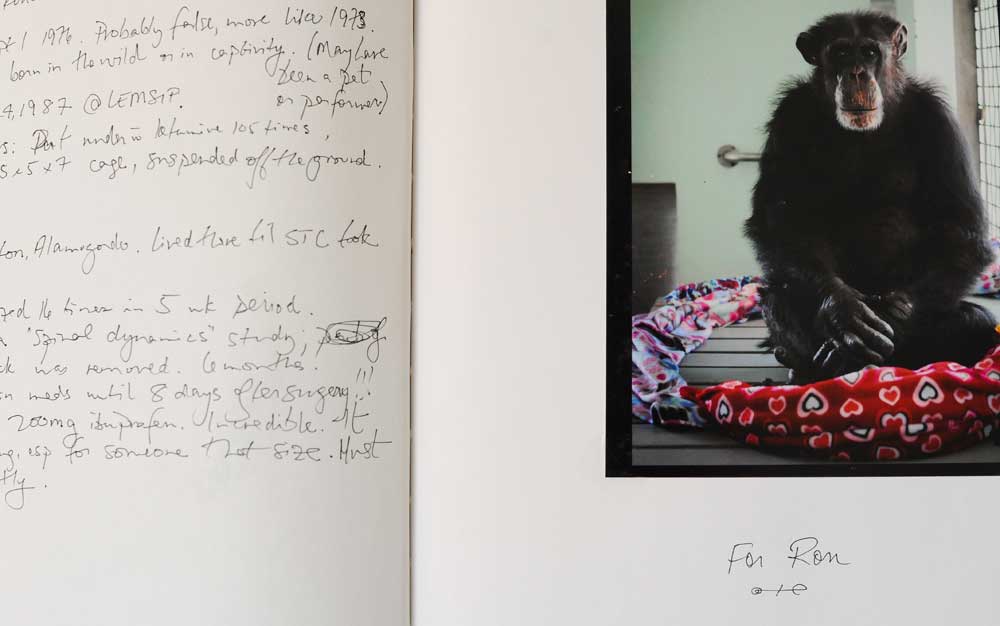 1976. Probably false, more like 1973.
born in the wild or in captivity. (May have
been a pet
or performer)
4, 1987 @ LEMSIP.
s: Put under w ketamine 105 times,
5x5x7 cage, suspended off the ground.
ton, Alamogordo. Lived there til STC took
zed 16 times in 5 wk period.
"Spinal dynamics" study;
ck was removed. 6 months.
n meds until 8 days after surgery!!!
200mg ibuprofen. Incredible. It
ng, esp for someone that size. Must
tly.
For Ron